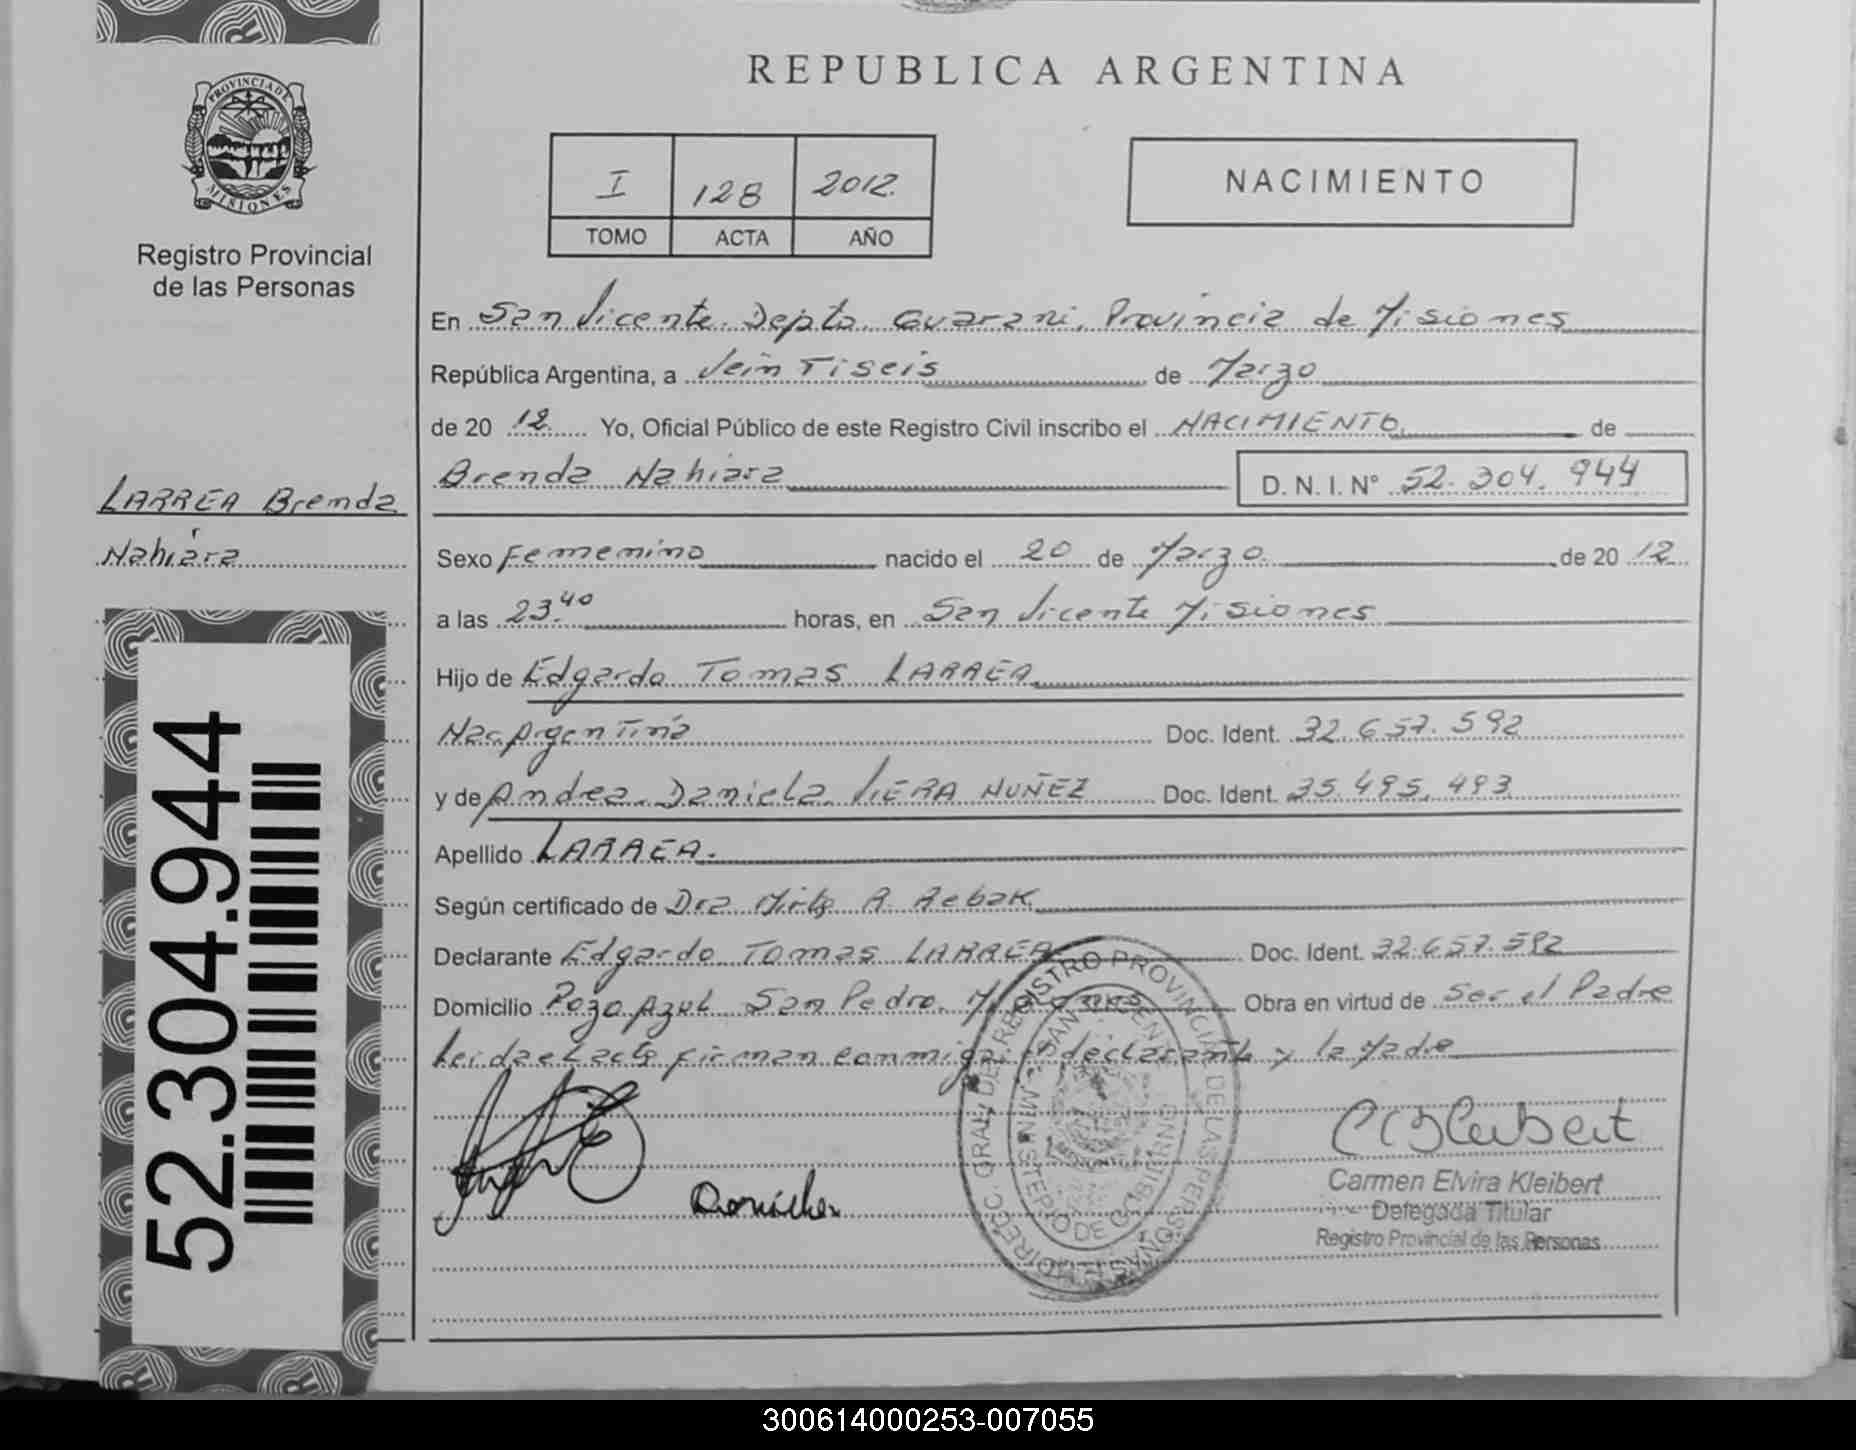 REPUBLICA ARGENTINA
PROVINCIA DE
MISIONES
Registro Provincial
de las Personas
I 128 2012.
TOMO ACTA AÑO
NACIMIENTO
En San Vicente Depto. Guarani, Provincia de Misiones
República Argentina, a Veintiseis de Marzo
de 20 12 Yo, Oficial Público de este Registro Civil inscribo el NACIMIENTO de
Brenda Nahiara D. N. I. N° 52.304.944
LARREA Brenda
Nahiara
Sexo Femenino nacido el 20 de Marzo de 20 12
a las 23.40 horas, en San Vicente Misiones
Hijo de Edgardo Tomas LARREA
Nac Argentina Doc. Ident. 32.657.592
y de Andrea Daniela VIERA NUÑEZ Doc. Ident. 35.495.493
Apellido LARREA.
Según certificado de Dra Mirta R. Rebak
Declarante Edgardo Tomas LARREA Doc. Ident. 32.657.592
Domicilio Pozo Azul San Pedro, Misiones Obra en virtud de Ser el Padre
Leida el acta firman conmigo el declarante y la Madre
52.304.944
DIRECC. GRAL. DEL REGISTRO PROVINCIAL DE LAS PERSONAS
SAN VICENTE
MINISTERIO DE GOBIERNO
Carmen Elvira Kleibert
Delegada Titular
Registro Provincial de las Personas
300614000253-007055